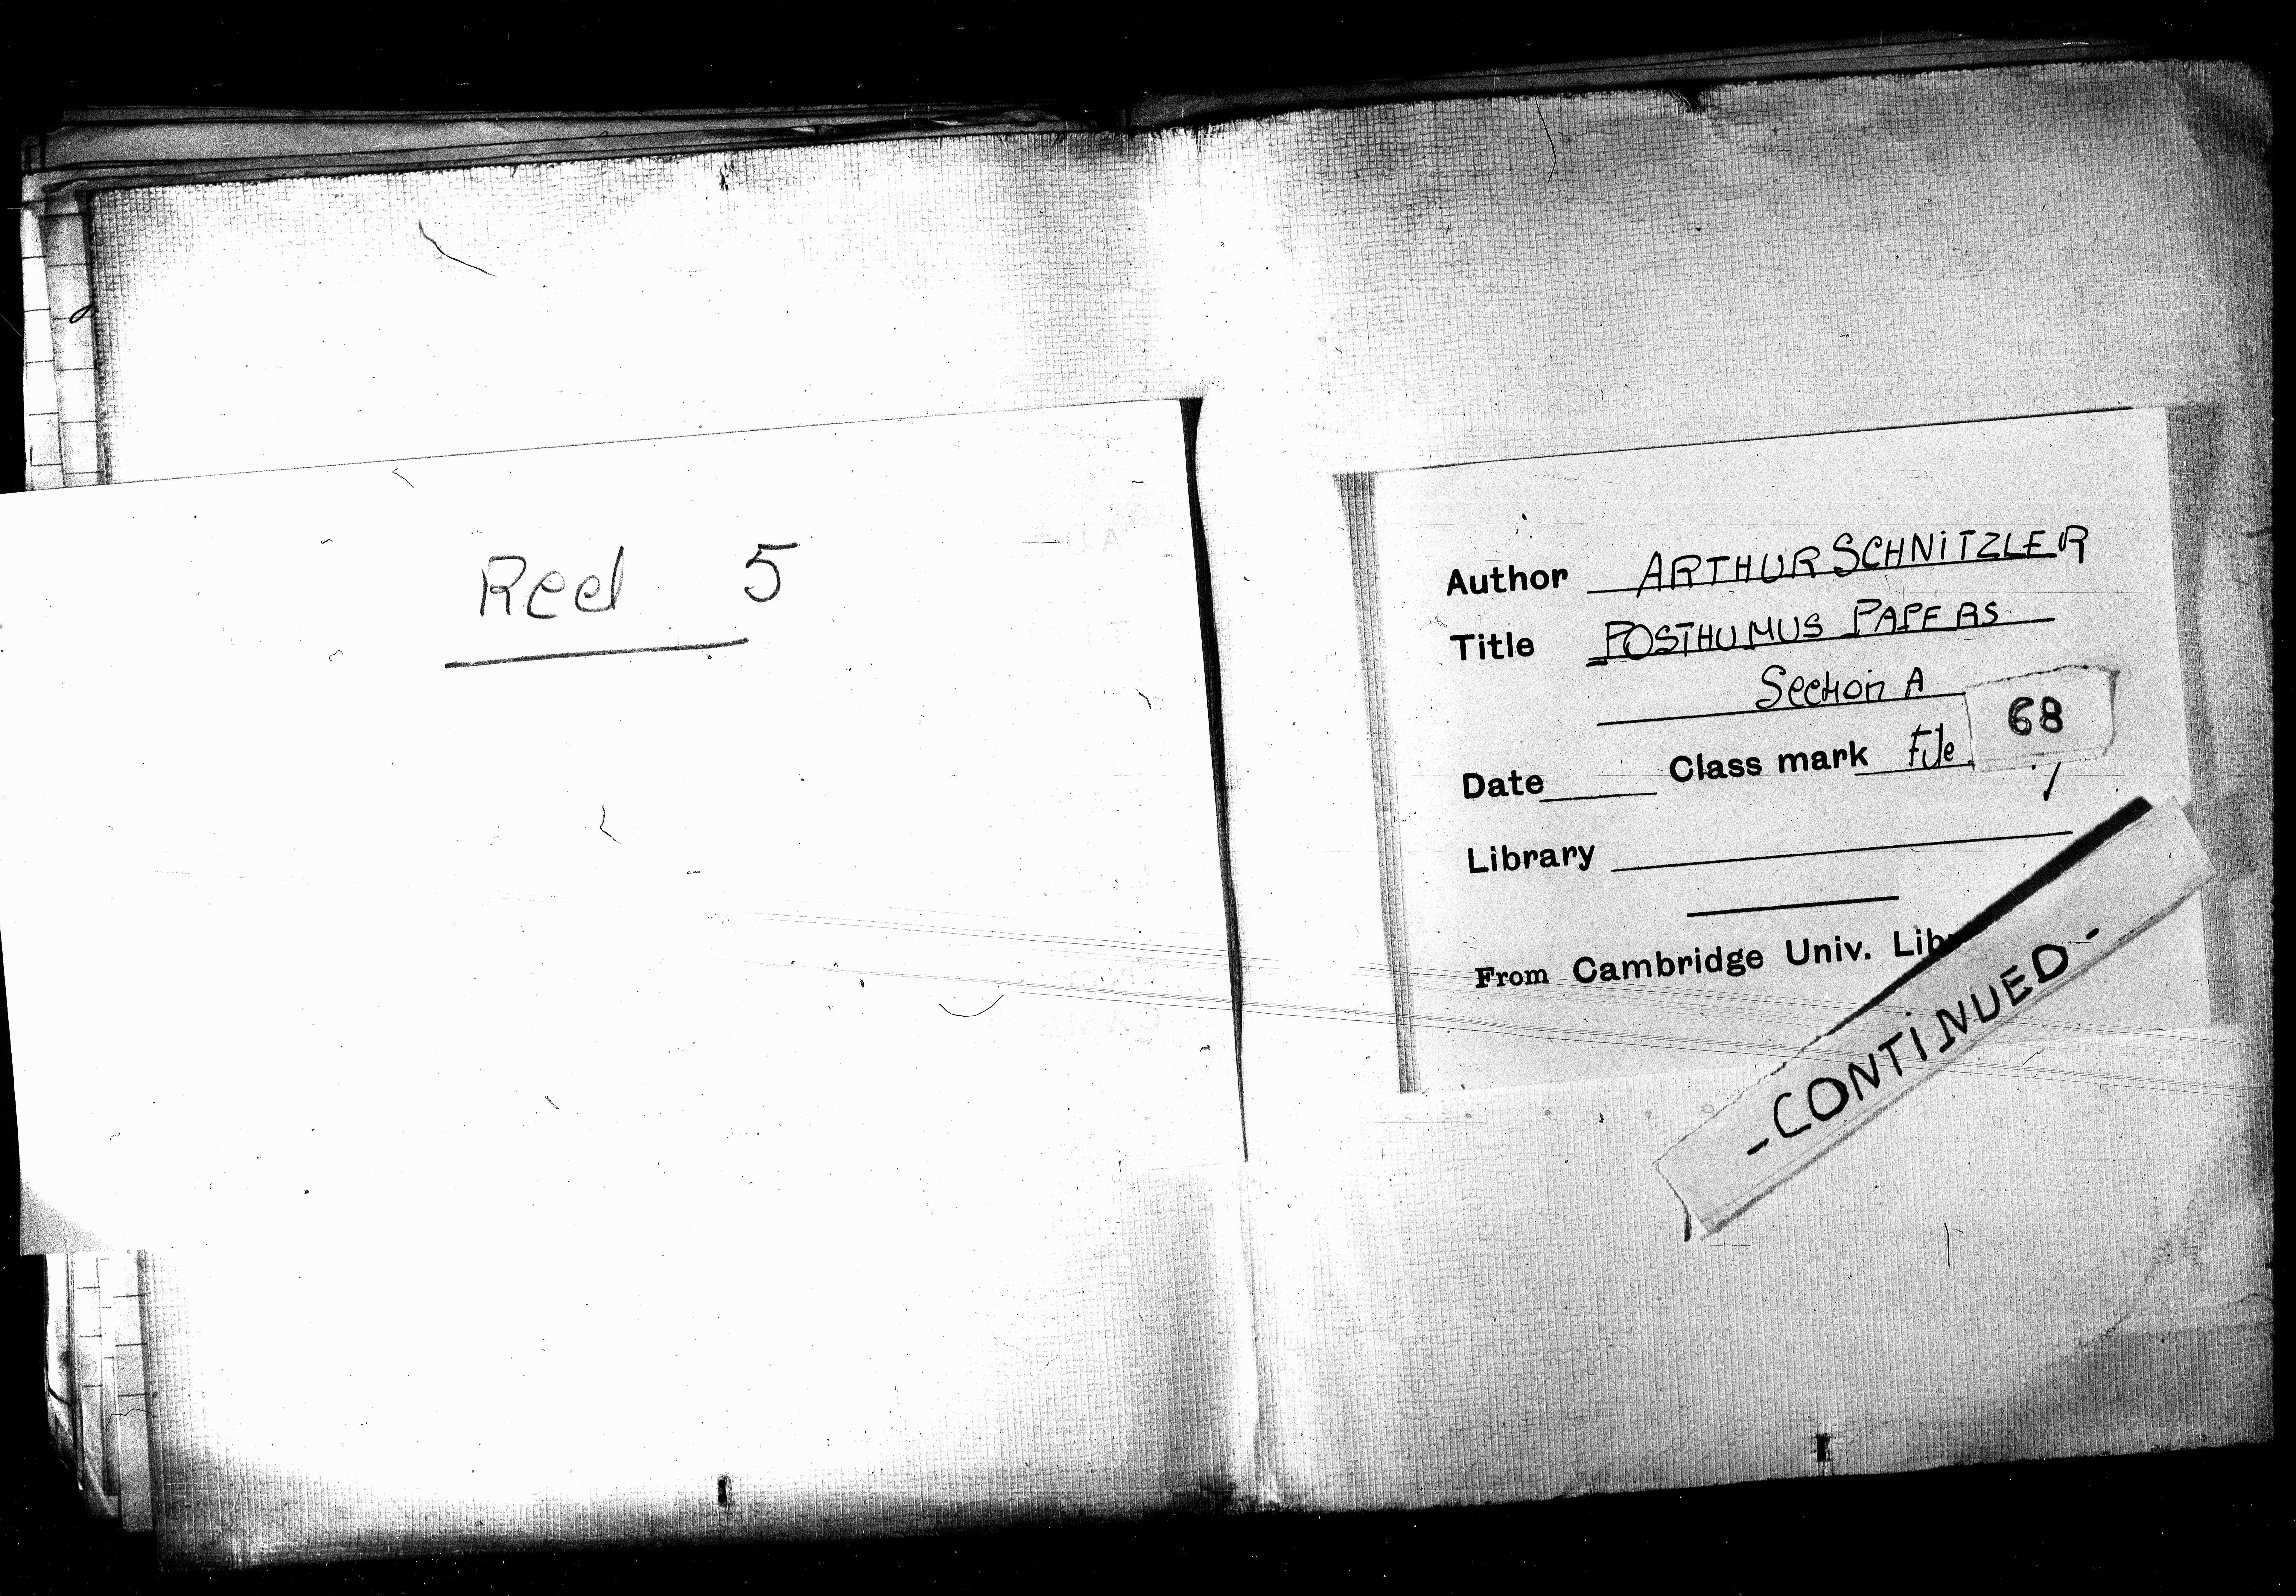 Reel 5
Author ARTHUR SCHNITZLER
Title POSTHUMUS PAPERS
Section A
Date Class mark File 68
Library
From Cambridge Univ. Lib
-CONTINUED-